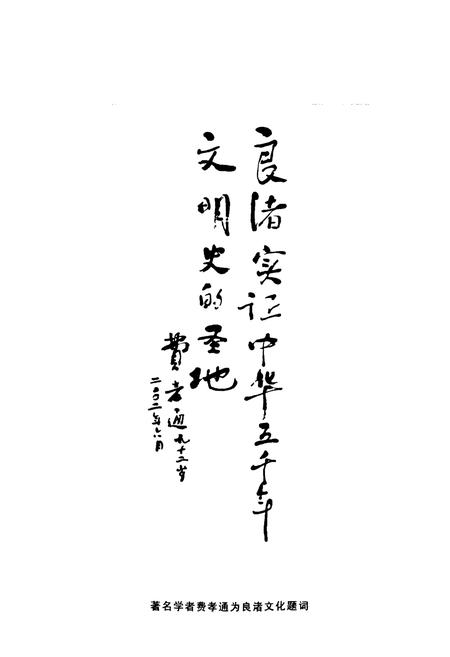 良渚实证中华五千年
文明史的圣地
费孝通九十二岁
二〇〇二年六月
著名学者费孝通为良渚文化题词